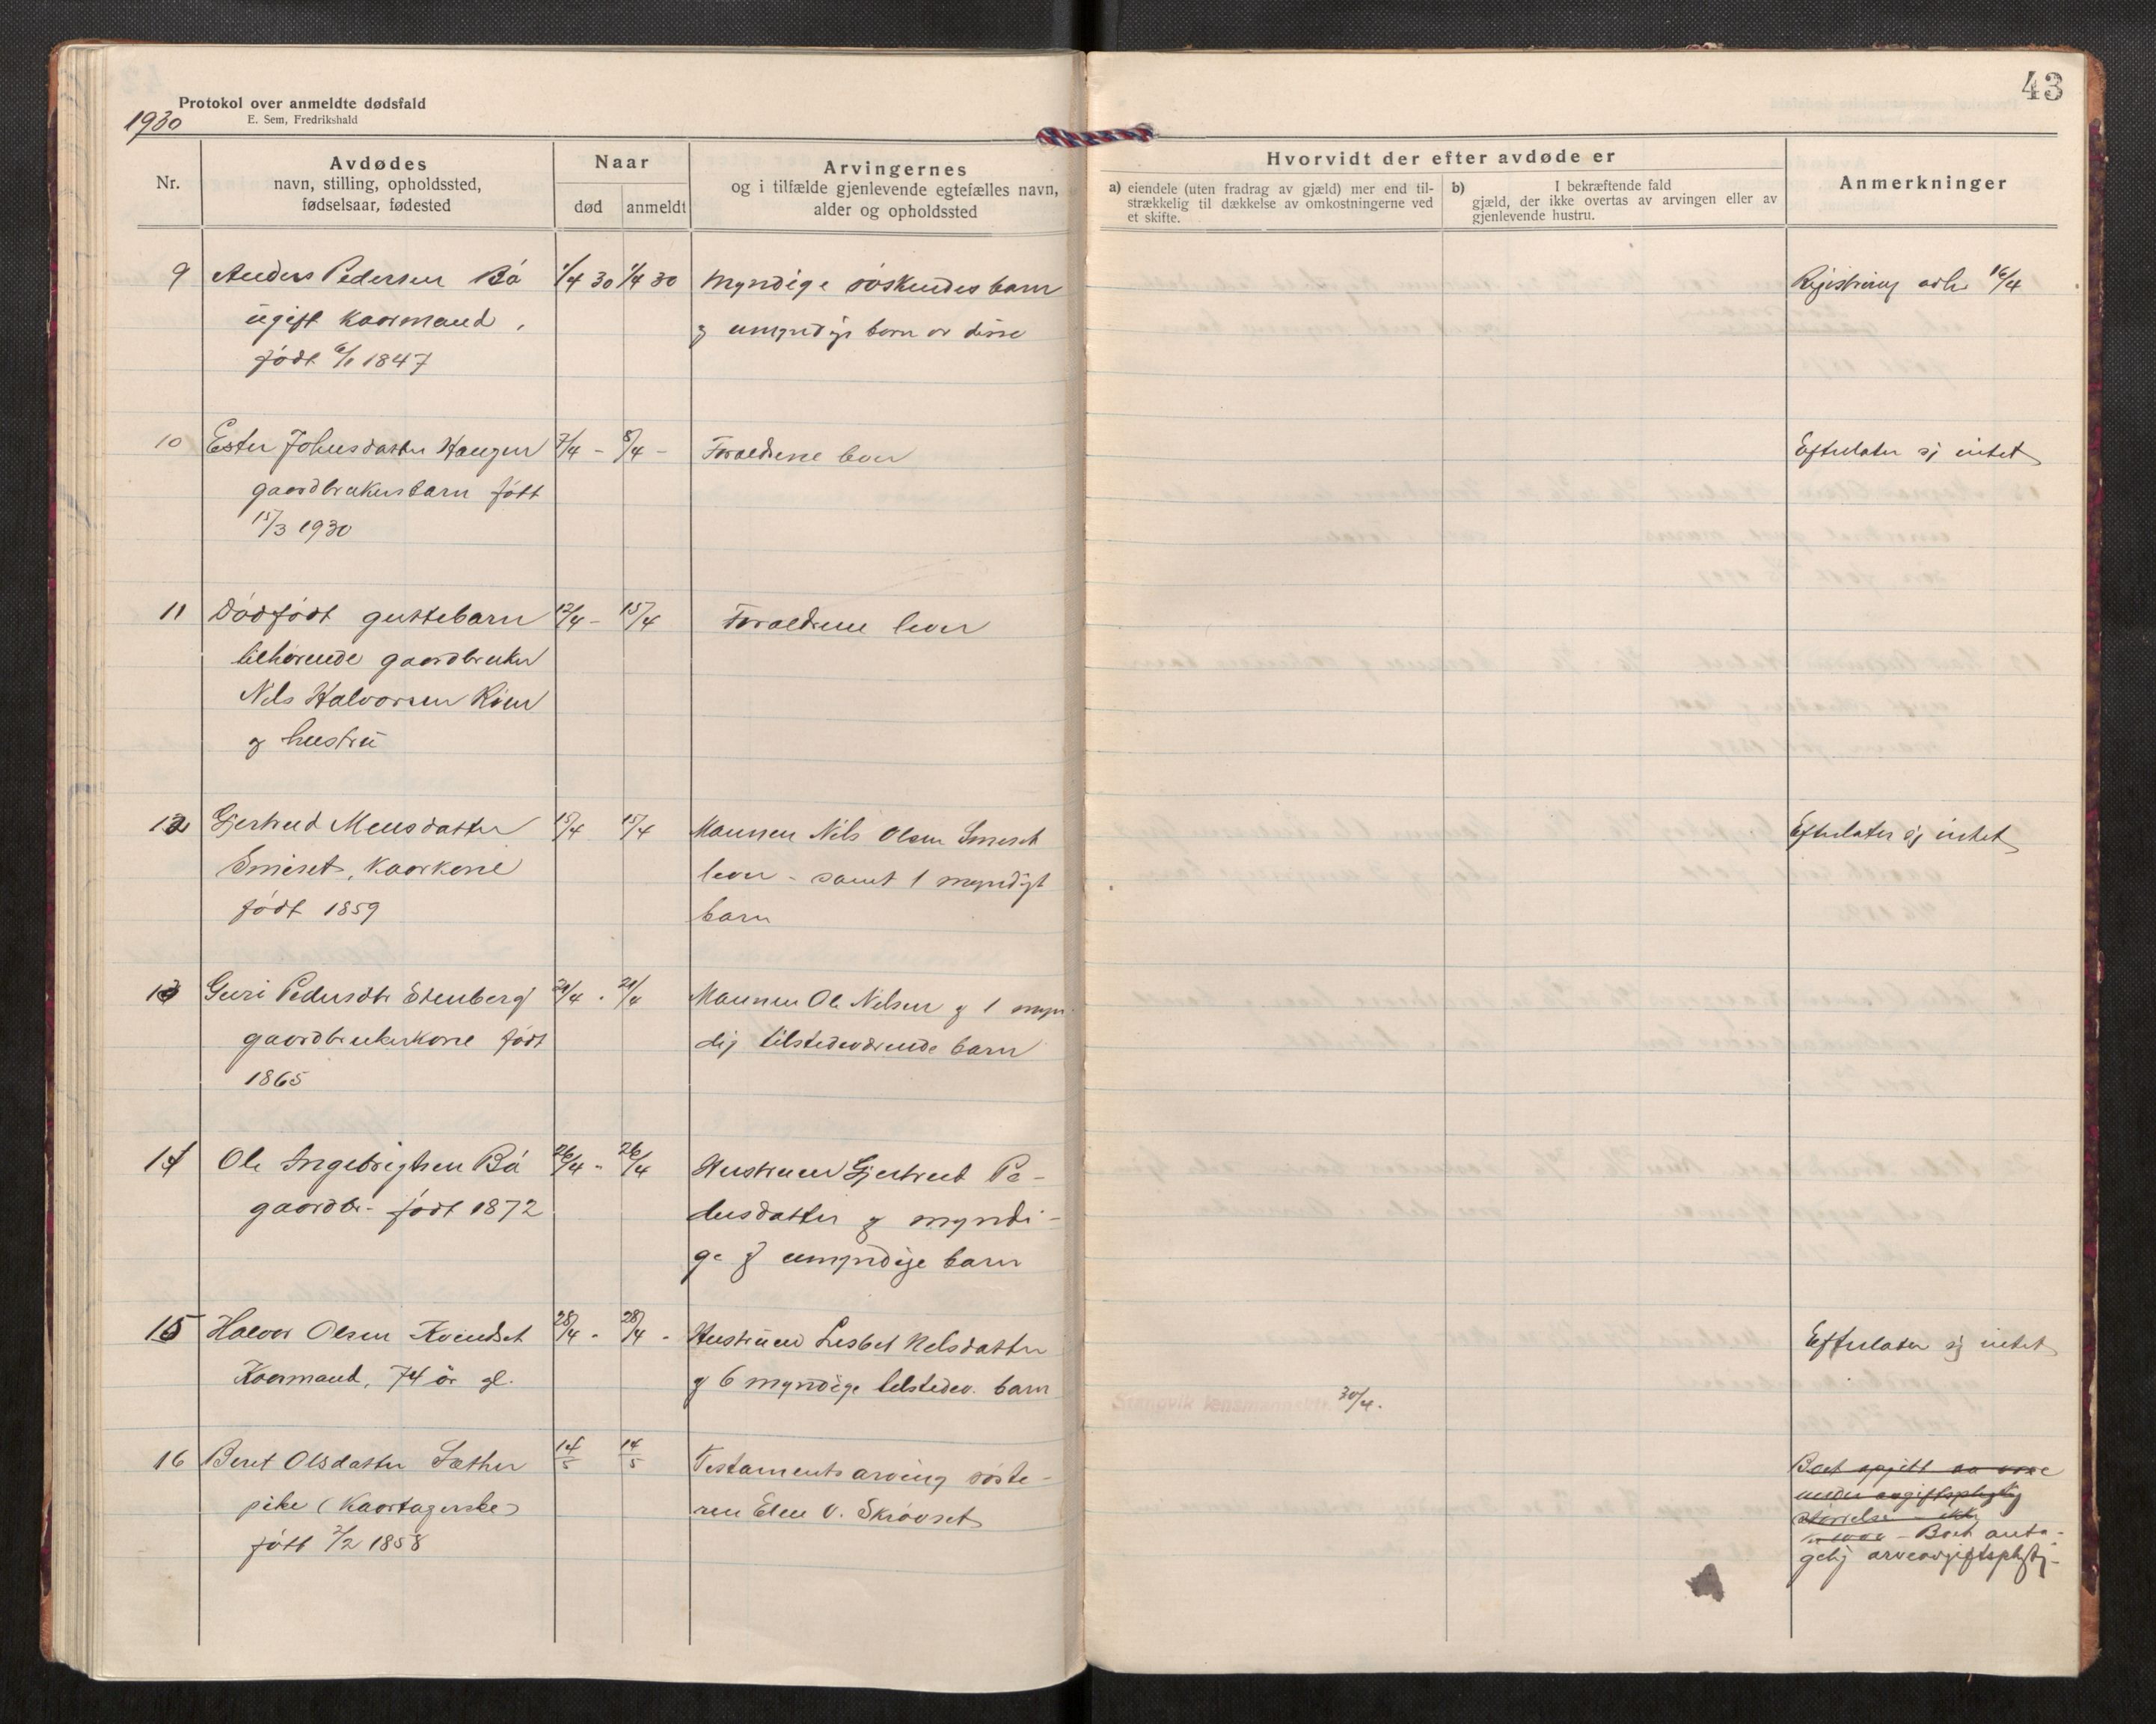 43
Protokol over anmeldte dødsfald
E. Sem, Fredrikshald
1930
Nr.
Avdødes
navn, stilling, opholdssted,
fødselsaar, fødested
Naar
død
anmeldt
Arvingernes
og i tilfælde gjenlevende egtefælles navn,
alder og opholdssted
Hvorvidt der efter avdøde er
a) eiendele (uten fradrag av gjæld) mer end til-
strækkelig til dækkelse av omkostningerne ved
et skifte.
b) I bekræftende fald
gjæld, der ikke overtas av arvingen eller av
gjenlevende hustru.
Anmerkninger
9 Anders Pedersen Bø 1/4 30 1/4 30 Myndige søskendes barn Registrering 16/4
ugift kaarmand, og umyndige barn av disse
født 1847
10 Ester Johnsdatter Haugen 7/4 - 8/4 - Foraeldrene lever Efterlater sj intet
gaardbrukersbarn født
15/3 1930
11 Dødfødt guttebarn 12/4 - 15/4 Foraeldrene lever
tilhørende gaardbruker
Nils Halvorsen
og hustru
12 Gjertrud Monsdatter 15/4 15/4 Mannen Nils Olsen Smeset Efterlater sj intet
Smeset, kaarkone lever - samt 1 myndigt
født 1859 barn
13 Guri Pedersdtr Stenberg 21/4 - 21/4 Mannen Ole Nilsen og 1 myn-
gaardbrukerkone født dig tilstedeværende barn
1865
14 Ole Ingebrigtsen Bø 26/4 - 26/4 Hustruen Gjertrud Pe-
gaardbr- født 1872 dersdatter og myndi-
ge og umyndige barn
15 Halvor Olsen Kvendset 28/4 - 28/4 - Hustruen Lisbet Nelsdatter Efterlater sj intet
Kaarmand, 74 år gl. og 6 myndige tilstedev. barn
Stangvik lensmannsktr. 30/4.
16 Beret Olsdatter Sæther 14/5 14/5 Testamentsarving søste- Boet opgitt aa være
pike (Kaartagerske) ren Elen O. Skrøvset under avgiftspligtig
født 7/2 1858 størrelse - ikke
- Boet anta-
gelig arveavgiftspligtig-